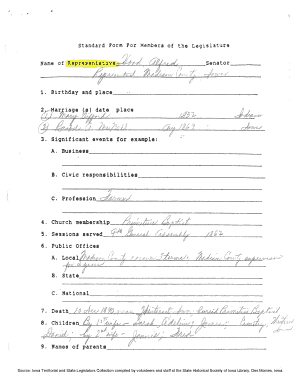 Standard Form For Members of the Legislature
Name of Representative Hood Alfred Senator
Represented Madison County Iowa
1. Birthday and place
2. Marriage (s) date place
(1) Mary 1832 Indiana
(2) Aug 1869 Iowa
3. Significant events for example:
A. Business
B. Civic responsibilities
C. Profession Farmer
4. Church membership Primitive Baptist
5. Sessions served 9th General Assembly 1862
6. Public Offices
A. Local Madison County Madison County supervisor
B. State
C. National
7. Death 10 Dec 1890 Iowa; buried Primitive Baptist
8. Children By 1st wife - Sarah
by 2nd wife -
9. Names of parents
Source: Iowa Territorial and State Legislators Collection compiled by volunteers and staff at the State Historical Society of Iowa Library, Des Moines, Iowa.